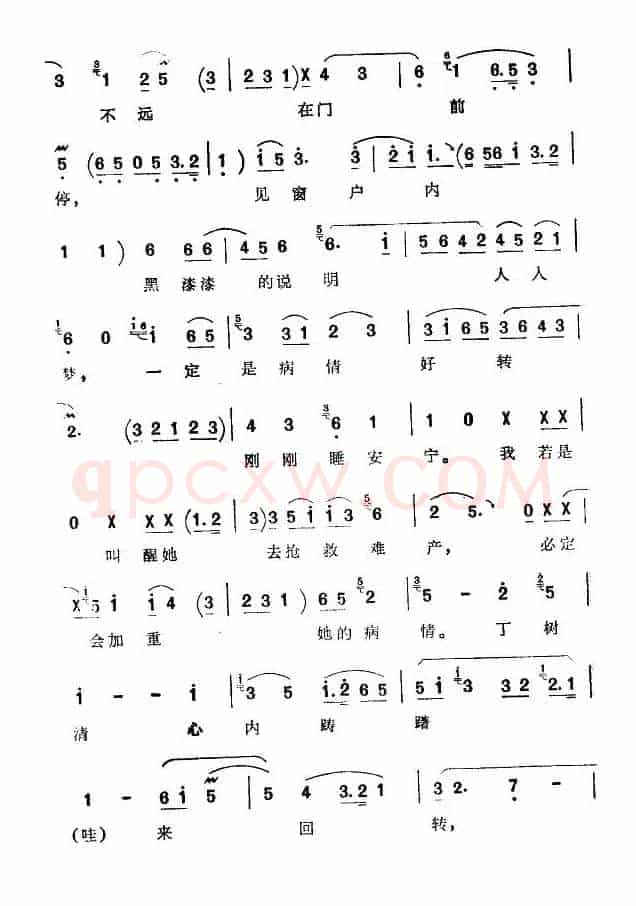 3 3 1 2 5 (3 | 2 3 1) X 4 3 | 6 6 1 6. 5 3 |
不远 在门 前
5 (6 5 0 5 3.2 | 1) i 5 3. 3 | 2 i i. (6 56 i 3.2 |
停, 见窗户内
1 1) 6 6 6 | 4 5 6 5 6. i | 5 6 4 2 4 5 2 1 |
黑漆漆 的说明 人人
1 6 0 i6 i 6 5 | 5 3 3 1 2 3 | 3 i 6 5 3 6 4 3 |
梦, 一定 是病情 好 转
2. (3 2 1 2 2 3) | 4 3 3 6 1 | 1 0 X X X |
刚刚睡安 宁。 我若是
0 X X X (1.2 | 3) 3 5 i i 3 5 6 | 2 5. 0 X X |
叫醒她 去抢救难 产, 必定
X i 5 i i 4 (3 | 2 3 1) 6 5 5 2 | 3 5 - 2 2 5 |
会加重 她的病 情。 丁树
i - - i | i 3 5 i.2 6 5 | 5 i 3 3 3 2 i 2.1 |
清 心内踌 躇
1 - 6 i 5 | 5 4 3.2 1 | 3 2. 7 - |
(哇) 来 回 转,
qpcxw.COM